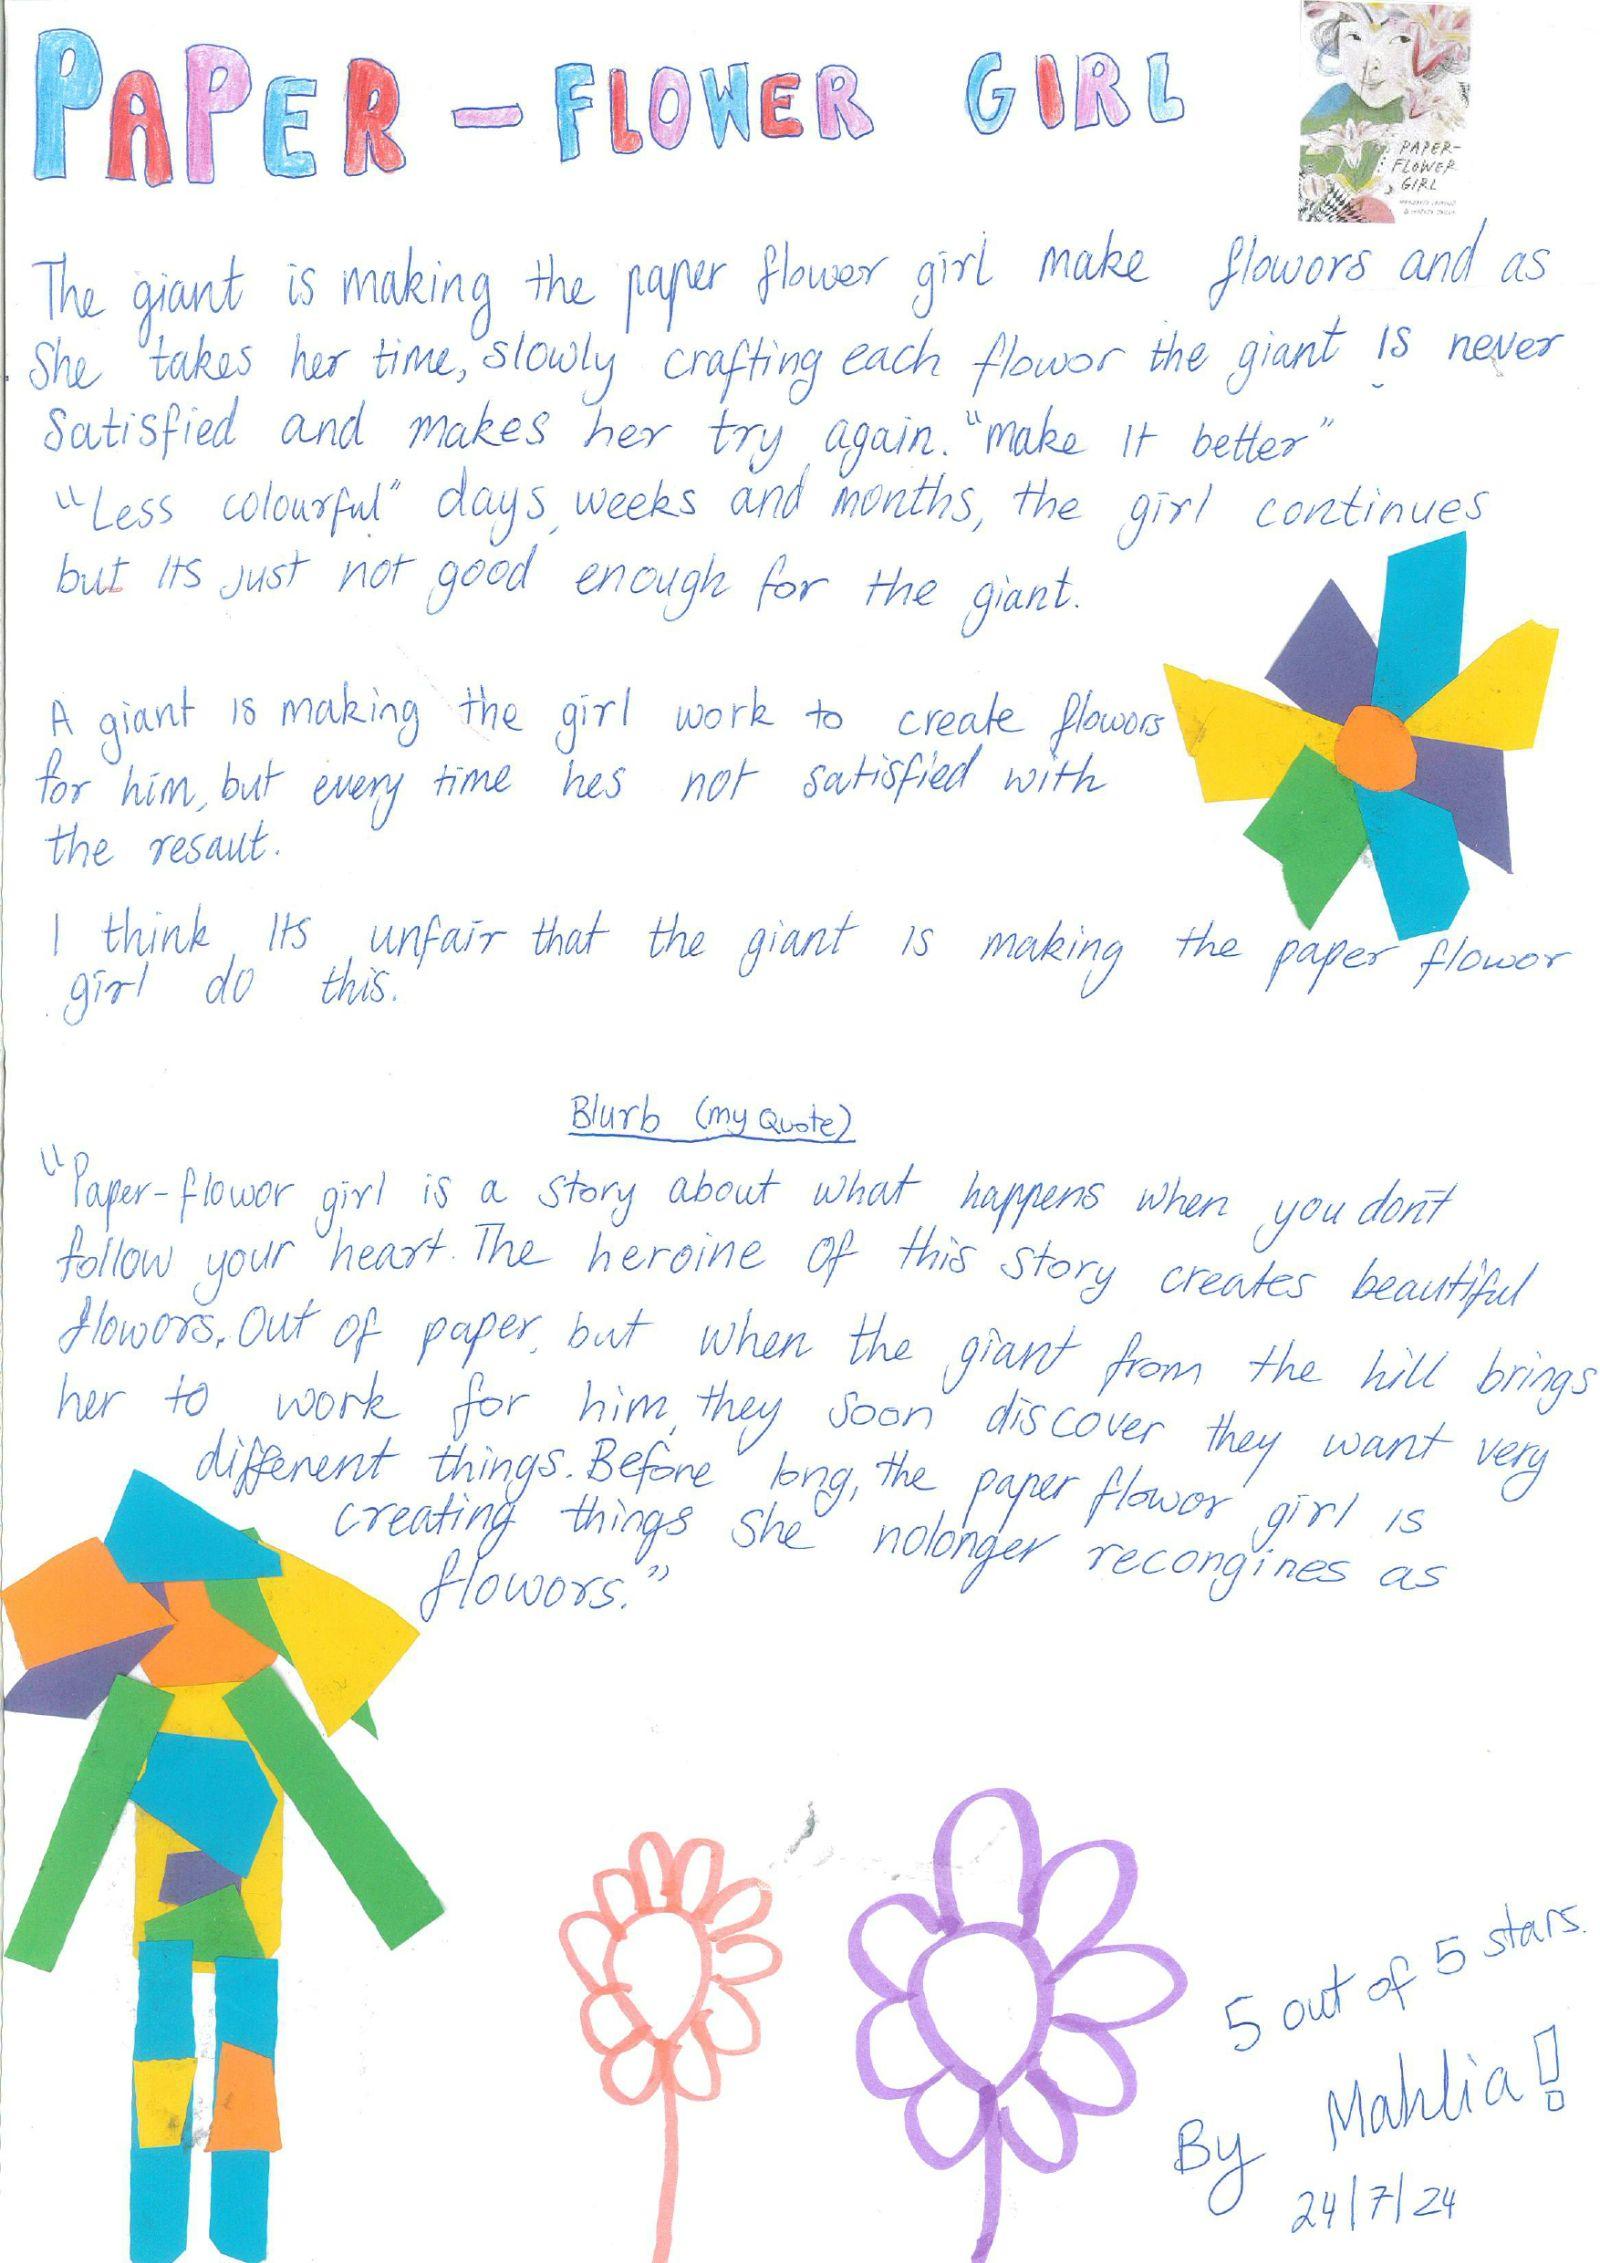 PAPER - FLOWER GIRL
PAPER-
FLOWER
GIRL
The giant is making the paper flower girl make flowors and as
she takes her time, slowly crafting each flowor the giant is never
satisfied and makes her try again. "make it better"
"Less colourful" days, weeks and months, the girl continues
but its just not good enough for the giant.
A giant is making the girl work to create flowors
for him, but every time hes not satisfied with
the resaut.
I think its unfair that the giant is making the paper flowor
girl do this.
Blurb (my Quote)
"Paper-flowor girl is a story about what happens when you don't
follow your heart. The heroine of this story creates beautiful
flowors. Out of paper, but when the giant from the hill brings
her to work for him, they soon discover they want very
different things. Before long, the paper flowor girl is
creating things she nolonger recongines as
flowors."
5 out of 5 stars.
By Mahlia!
24/7/24